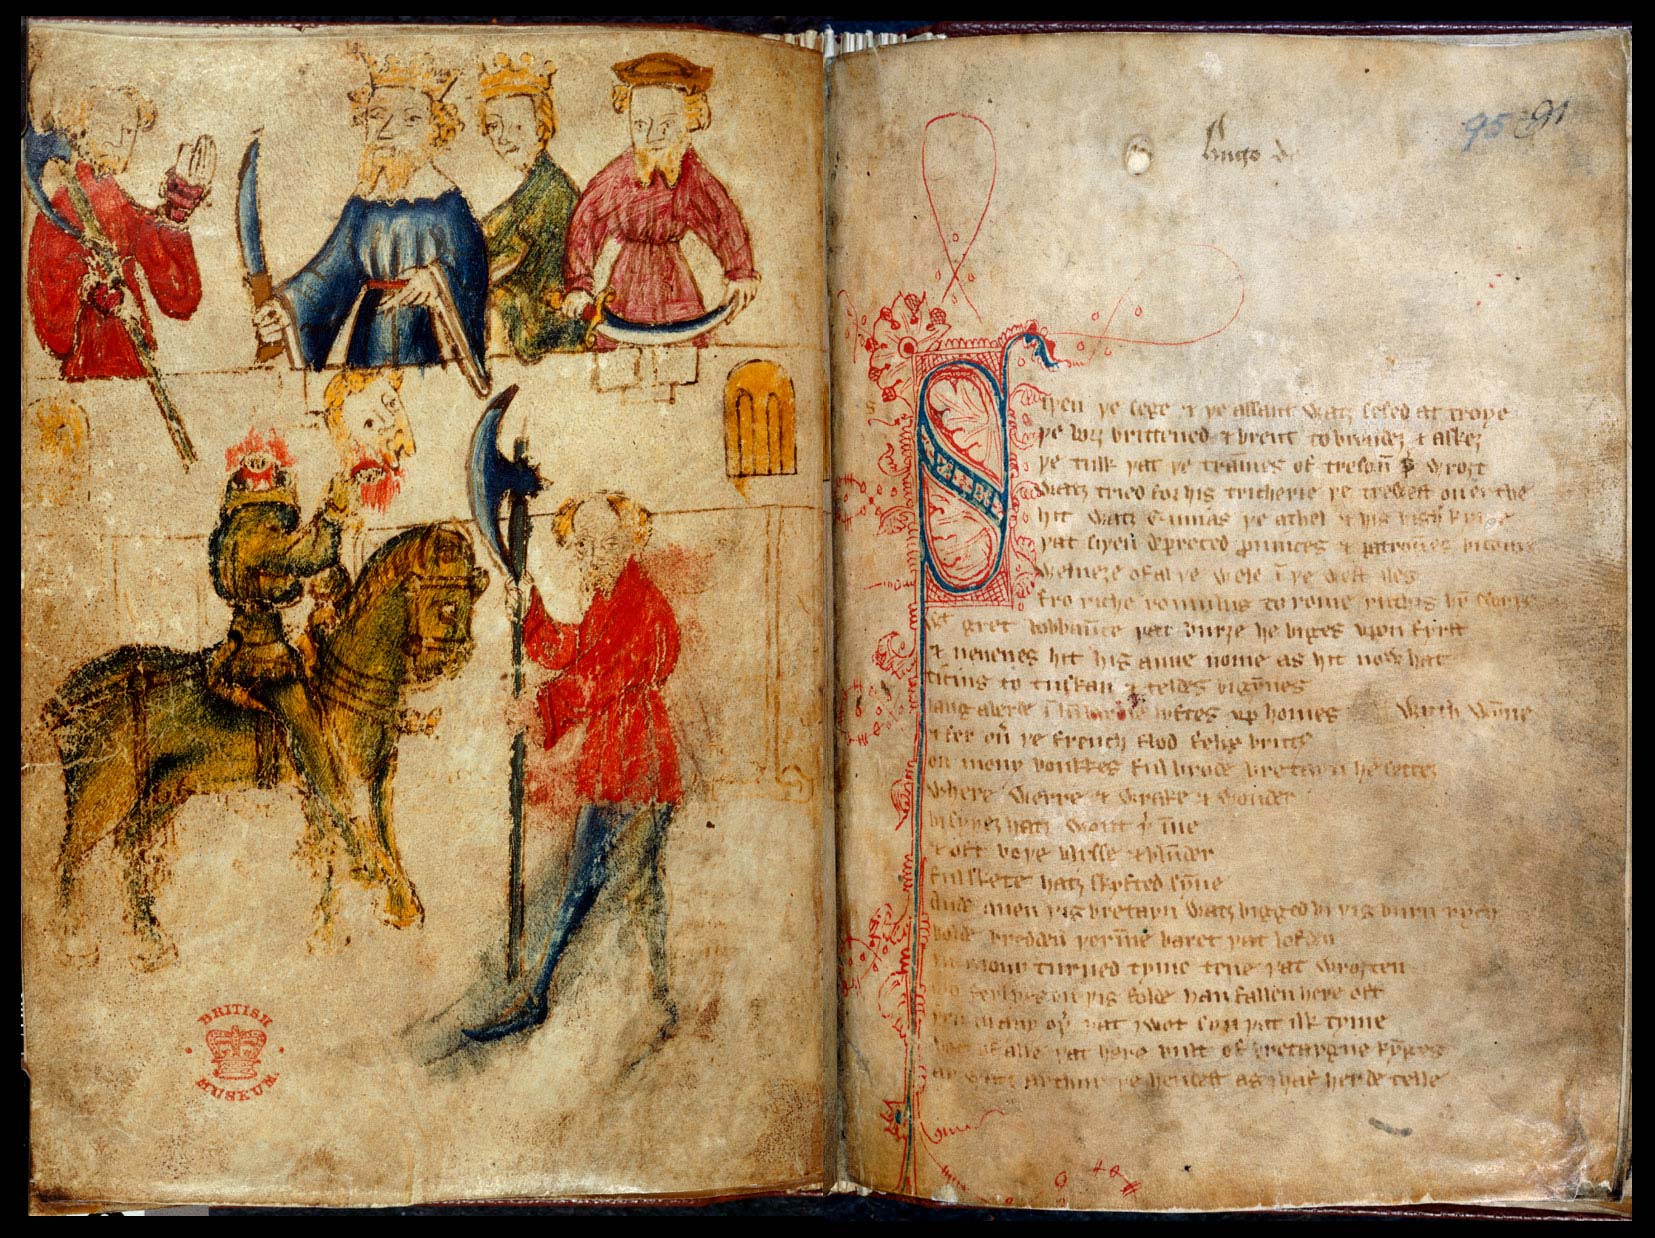 BRITISH
MUSEUM
95 91
Hugo de
Siþen þe sege & þe assaut watȝ sesed at troye
þe borȝ brittened & brent to brondeȝ & askeȝ
þe tulk þat þe trāmes of tresoū þ wroȝt
watȝ tried for his tricherie þe trewest on erthe
hit watȝ Ennias þe athel & his highe kynde
þat siþen depreced prouinces & patrounes bicome
welneȝe of al þe wele ī þe west iles
fro riche romulus to rome ricchis hȳ swyþe
wt gret bobbaūce þat burȝe he biges vpon fyrst
& neuenes hit his aune nome as hit now hat
ticius to tuskan & teldes bigȳnes
langaberde ī lūbardie lyftes vp homes wyth wȳne
& fer ou̾ þe french flod felix brutus
on mony bonkkes ful brode bretayn he setteȝ
where werre & wrake & wonder
bi syþeȝ hatȝ wont þ̾ īne
& oft boþe blysse & blūder
ful skete hatȝ skyfted sȳne
Ande quen þis bretayn watȝ bigged bi þis burn rych
bolde bredden þerīne baret þat lofden
in mony turned tyme tene þat wroȝten
mo ferlyes on þis folde han fallen here oft
þen in any oþ̾ þat I wot syn þat ilk tyme
bot of alle þat here bult of bretaygne kȳges
ay watȝ arthur þe hendest as I haf herde telle